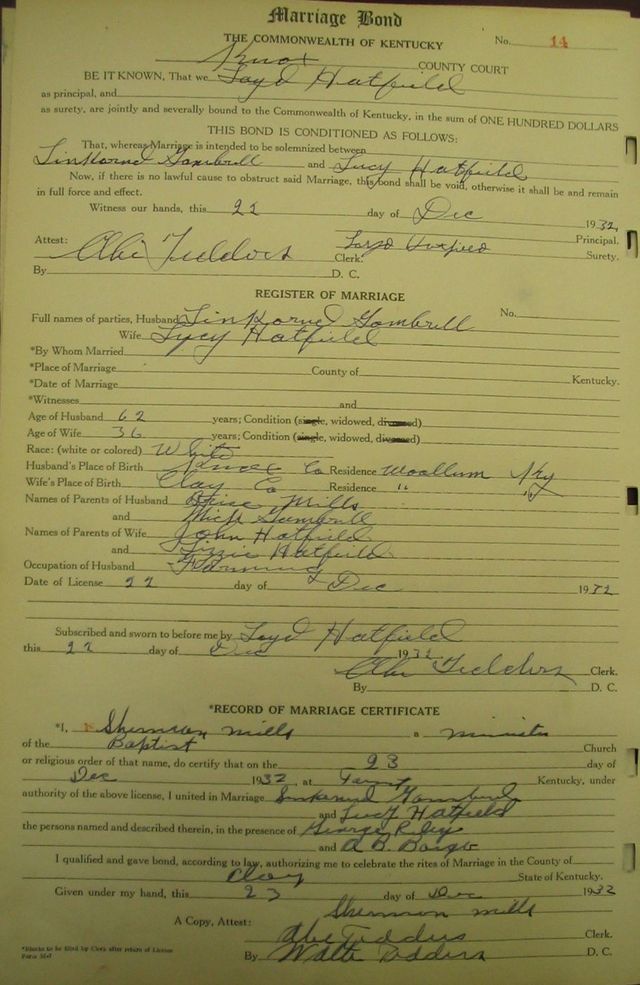 Marriage Bond
THE COMMONWEALTH OF KENTUCKY No. 14
Knox COUNTY COURT
BE IT KNOWN, That we Loyd Hatfield
as principal, and
as surety, are jointly and severally bound to the Commonwealth of Kentucky, in the sum of ONE HUNDRED DOLLARS
THIS BOND IS CONDITIONED AS FOLLOWS:
That, whereas Marriage is intended to be solemnized between
Sinkorned Gambrell and Lucy Hatfield
Now, if there is no lawful cause to obstruct said Marriage, this bond shall be void, otherwise it shall be and remain
in full force and effect.
Witness our hands, this 22 day of Dec 1932,
Loyd Hatfield Principal.
Attest: Abe Tedders Clerk. Surety.
By D. C.
REGISTER OF MARRIAGE
Full names of parties, Husband Sinkorned Gambrell No.
Wife Lucy Hatfield
*By Whom Married
*Place of Marriage County of Kentucky.
*Date of Marriage
*Witnesses and
Age of Husband 62 years; Condition (single, widowed, divorced)
Age of Wife 36 years; Condition (single, widowed, divorced)
Race: (white or colored) White
Husband's Place of Birth Knox Co Residence Woollum Ky
Wife's Place of Birth Clay Co Residence " "
Names of Parents of Husband Mills
and Gambrell
Names of Parents of Wife John Hatfield
and Lizzie Hatfield
Occupation of Husband Farming
Date of License 22 day of Dec 1932
Subscribed and sworn to before me by Loyd Hatfield
this 22 day of Dec 1932
Abe Tedders Clerk.
By D. C.
*RECORD OF MARRIAGE CERTIFICATE
*I, Sherman Mills a minister
of the Baptist Church
or religious order of that name, do certify that on the 23 day of
Dec 1932, at Kentucky, under
authority of the above license, I united in Marriage Sinkorned Gambrell
and Lucy Hatfield
the persons named and described therein, in the presence of George Riley
and A. B. Barger
I qualified and gave bond, according to law, authorizing me to celebrate the rites of Marriage in the County of
Clay State of Kentucky.
Given under my hand, this 23 day of Dec 1932
Sherman Mills
A Copy, Attest:
Abe Tedders Clerk.
By Walter Tedders D. C.
*Blanks to be filled by Clerk after return of License